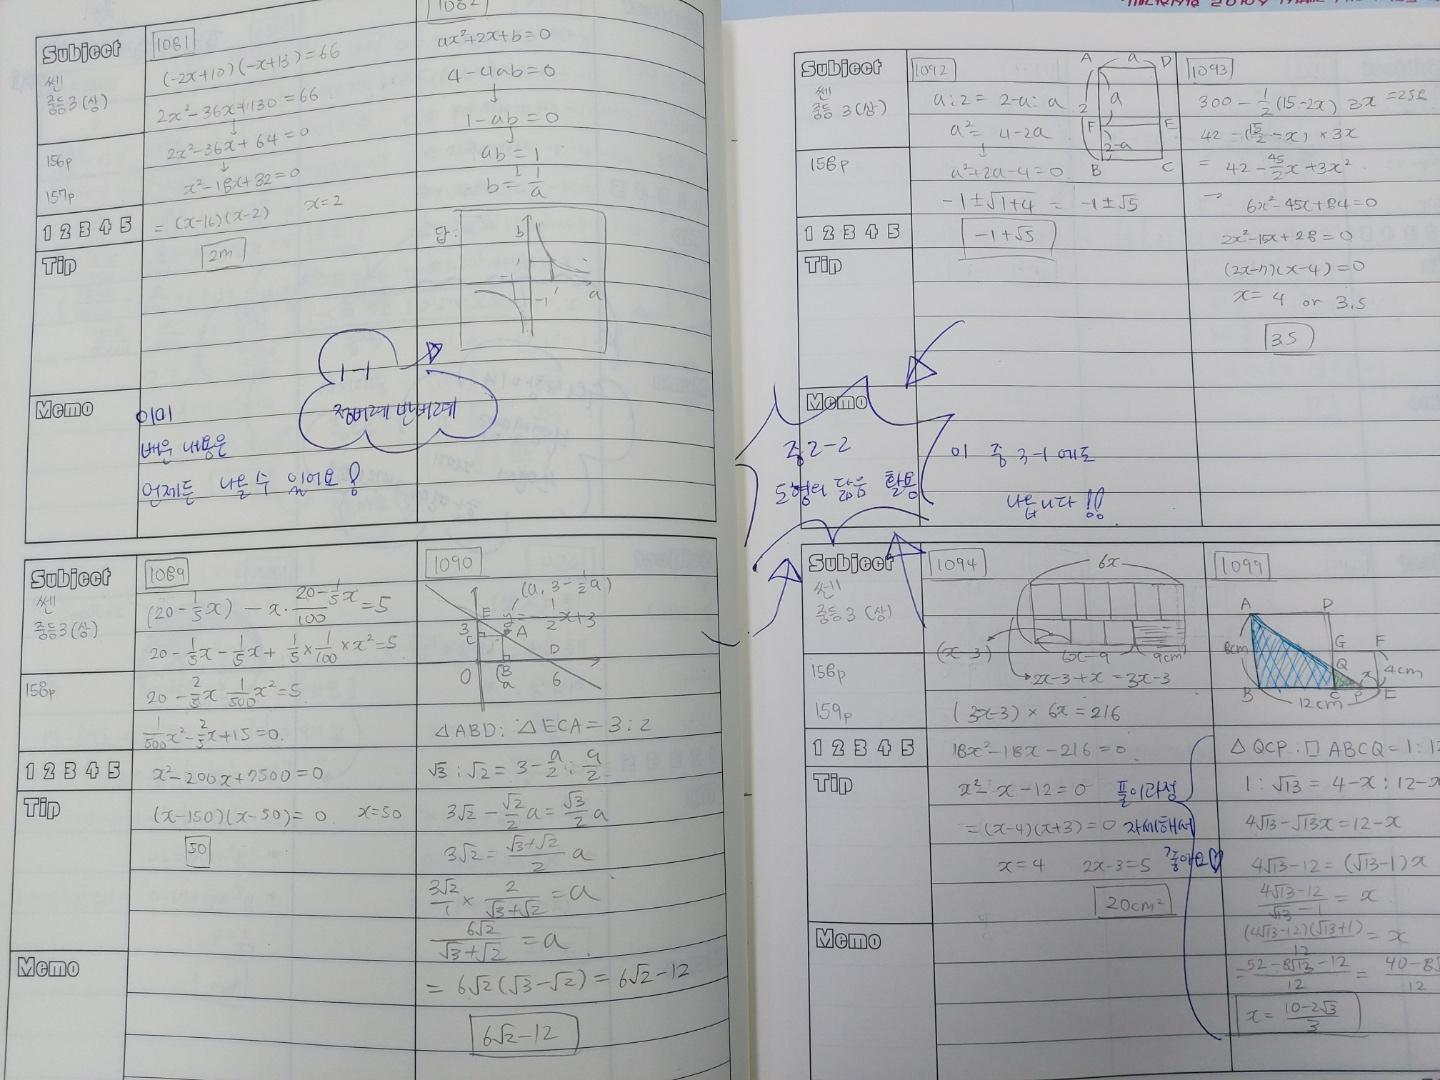 Subject
쎈
중등3(상)
156p
157p
1 2 3 4 5
Tip
Memo
1081
(-2x+10)(-x+13)=66
2x²-36x+130=66
2x²-36x+64=0
x²-18x+32=0
=(x-16)(x-2) x=2
2m
1082
ax²+2x+b=0
4-4ab=0
1-ab=0
ab=1
b=1/a
답:
b
a
1-1
정비례 반비례
이미
배운 내용은
언제든 나올 수 있어요!
Subject
쎈
중등3(상)
158p
1 2 3 4 5
Tip
Memo
1089
(20-1/5x)-x·(20-1/5x)/100=5
20-1/5x-1/5x+1/5×1/100×x²=5
20-2/5x 1/500x²=5
1/500x²-2/5x+15=0.
x²-200x+7500=0
(x-150)(x-50)=0 x=50
50
1090
(a, 3-1/2a)
y=-1/2x+3
3 E C A D
O B a 6
◁ABD:△ECA=3:2
√3:√2=3-a/2:a/2
3√2-√2/2a=√3/2a
3√2=(√3+√2)/2 a
3√2/1×2/(√3+√2)=a
6√2/(√3+√2)=a
=6√2(√3-√2)=6√2-12
6√2-12
Subject
쎈
중등3(상)
158p
1 2 3 4 5
Tip
Memo
1092
a:2=2-a:a
a²=4-2a
a²+2a-4=0
-1±√1+4=-1±√5
-1+√5
A a D
2 a
F E
2-a
B C
1093
300-1/2(15-2x)3x=252
42=(15/2-x)×3x
=42-45/2x+3x²
6x²-45x+84=0
2x²-15x+28=0
(2x-7)(x-4)=0
x=4 or 3.5
3.5
중2-2
도형의 닮음 활용
이 중3-1에도
나옵니다!!
Subject
쎈
중등3(상)
158p
159p
1 2 3 4 5
Tip
Memo
1094
6x
(x-3)
6x-9 9cm
2x-3+x=3x-3
(3x-3)×6x=216
18x²-18x-216=0
x²-x-12=0
=(x-4)(x+3)=0
x=4 2x-3=5
20cm²
풀이과정
자세해서
좋아요♡
1099
A D
8cm G F
Q 4cm
B C P x E
12cm
△QCP:□ABCQ=1:12
1:√13=4-x:12-x
4√13-√13x=12-x
4√13-12=(√13-1)x
(4√13-12)/(√13-1)=x
(4√13-12)(√13+1)/12=x
=(52-8√13-12)/12=
x=(10-2√3)/3